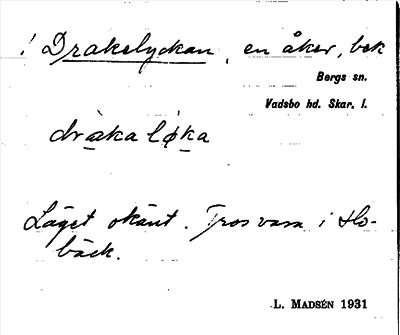 ! Drakelyckan, en åker, bek
Bergs sn.
Vadsbo hd. Skar. l.
dràka lø̀ka
Läget okänt. Tros vara i Ho-
bäck.
L. MADSÉN 1931